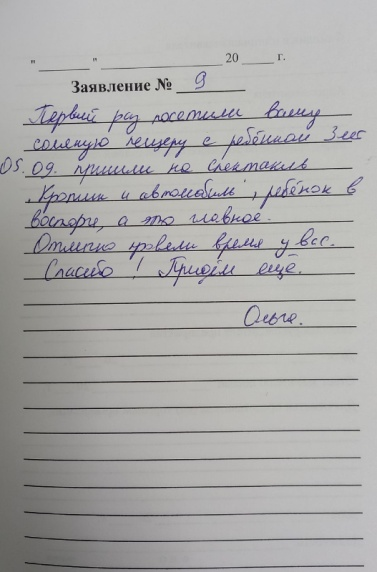 " " 20 г.
Заявление № 9
Первый раз посетили вашу
соляную пещеру с ребёнком 3 лет
05.09. пришли на спектакль
"Кролик и автомобиль", ребёнок в
восторге, а это главное.
Отлично провели время у вас.
Спасибо! Придём ещё.
Ольга.